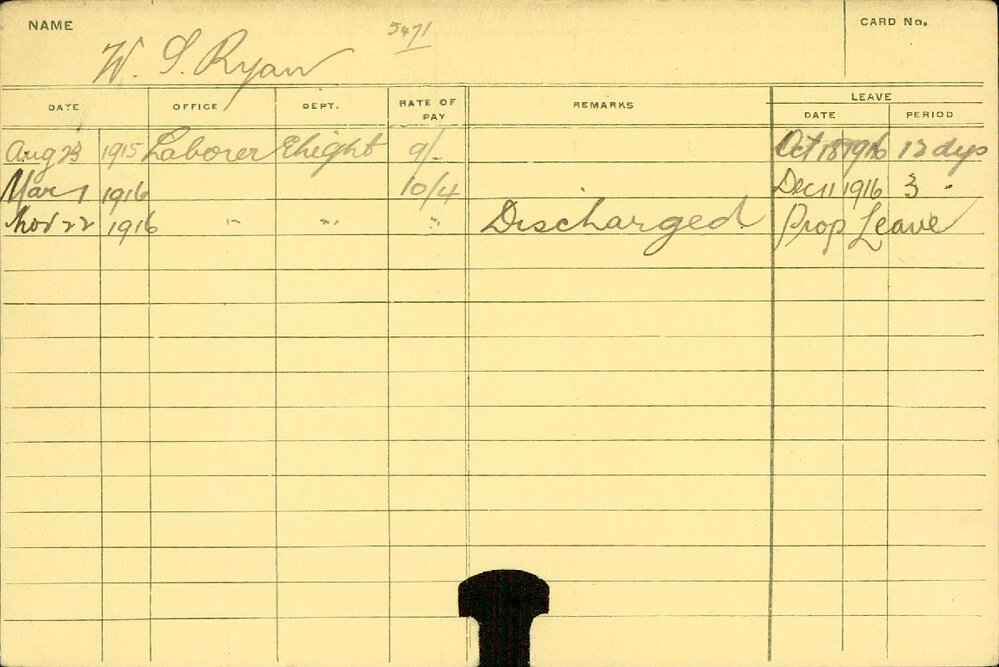 NAME W. S. Ryan 5471 CARD No.
DATE OFFICE DEPT. RATE OF PAY REMARKS LEAVE
DATE PERIOD
Aug 23 1915 Laborer Ehight 9/- Oct 18 1916 12 dys
Mar 1 1916 10/4 Dec 11 1916 3 "
Nov 22 1916 " " " Discharged Prop Leave